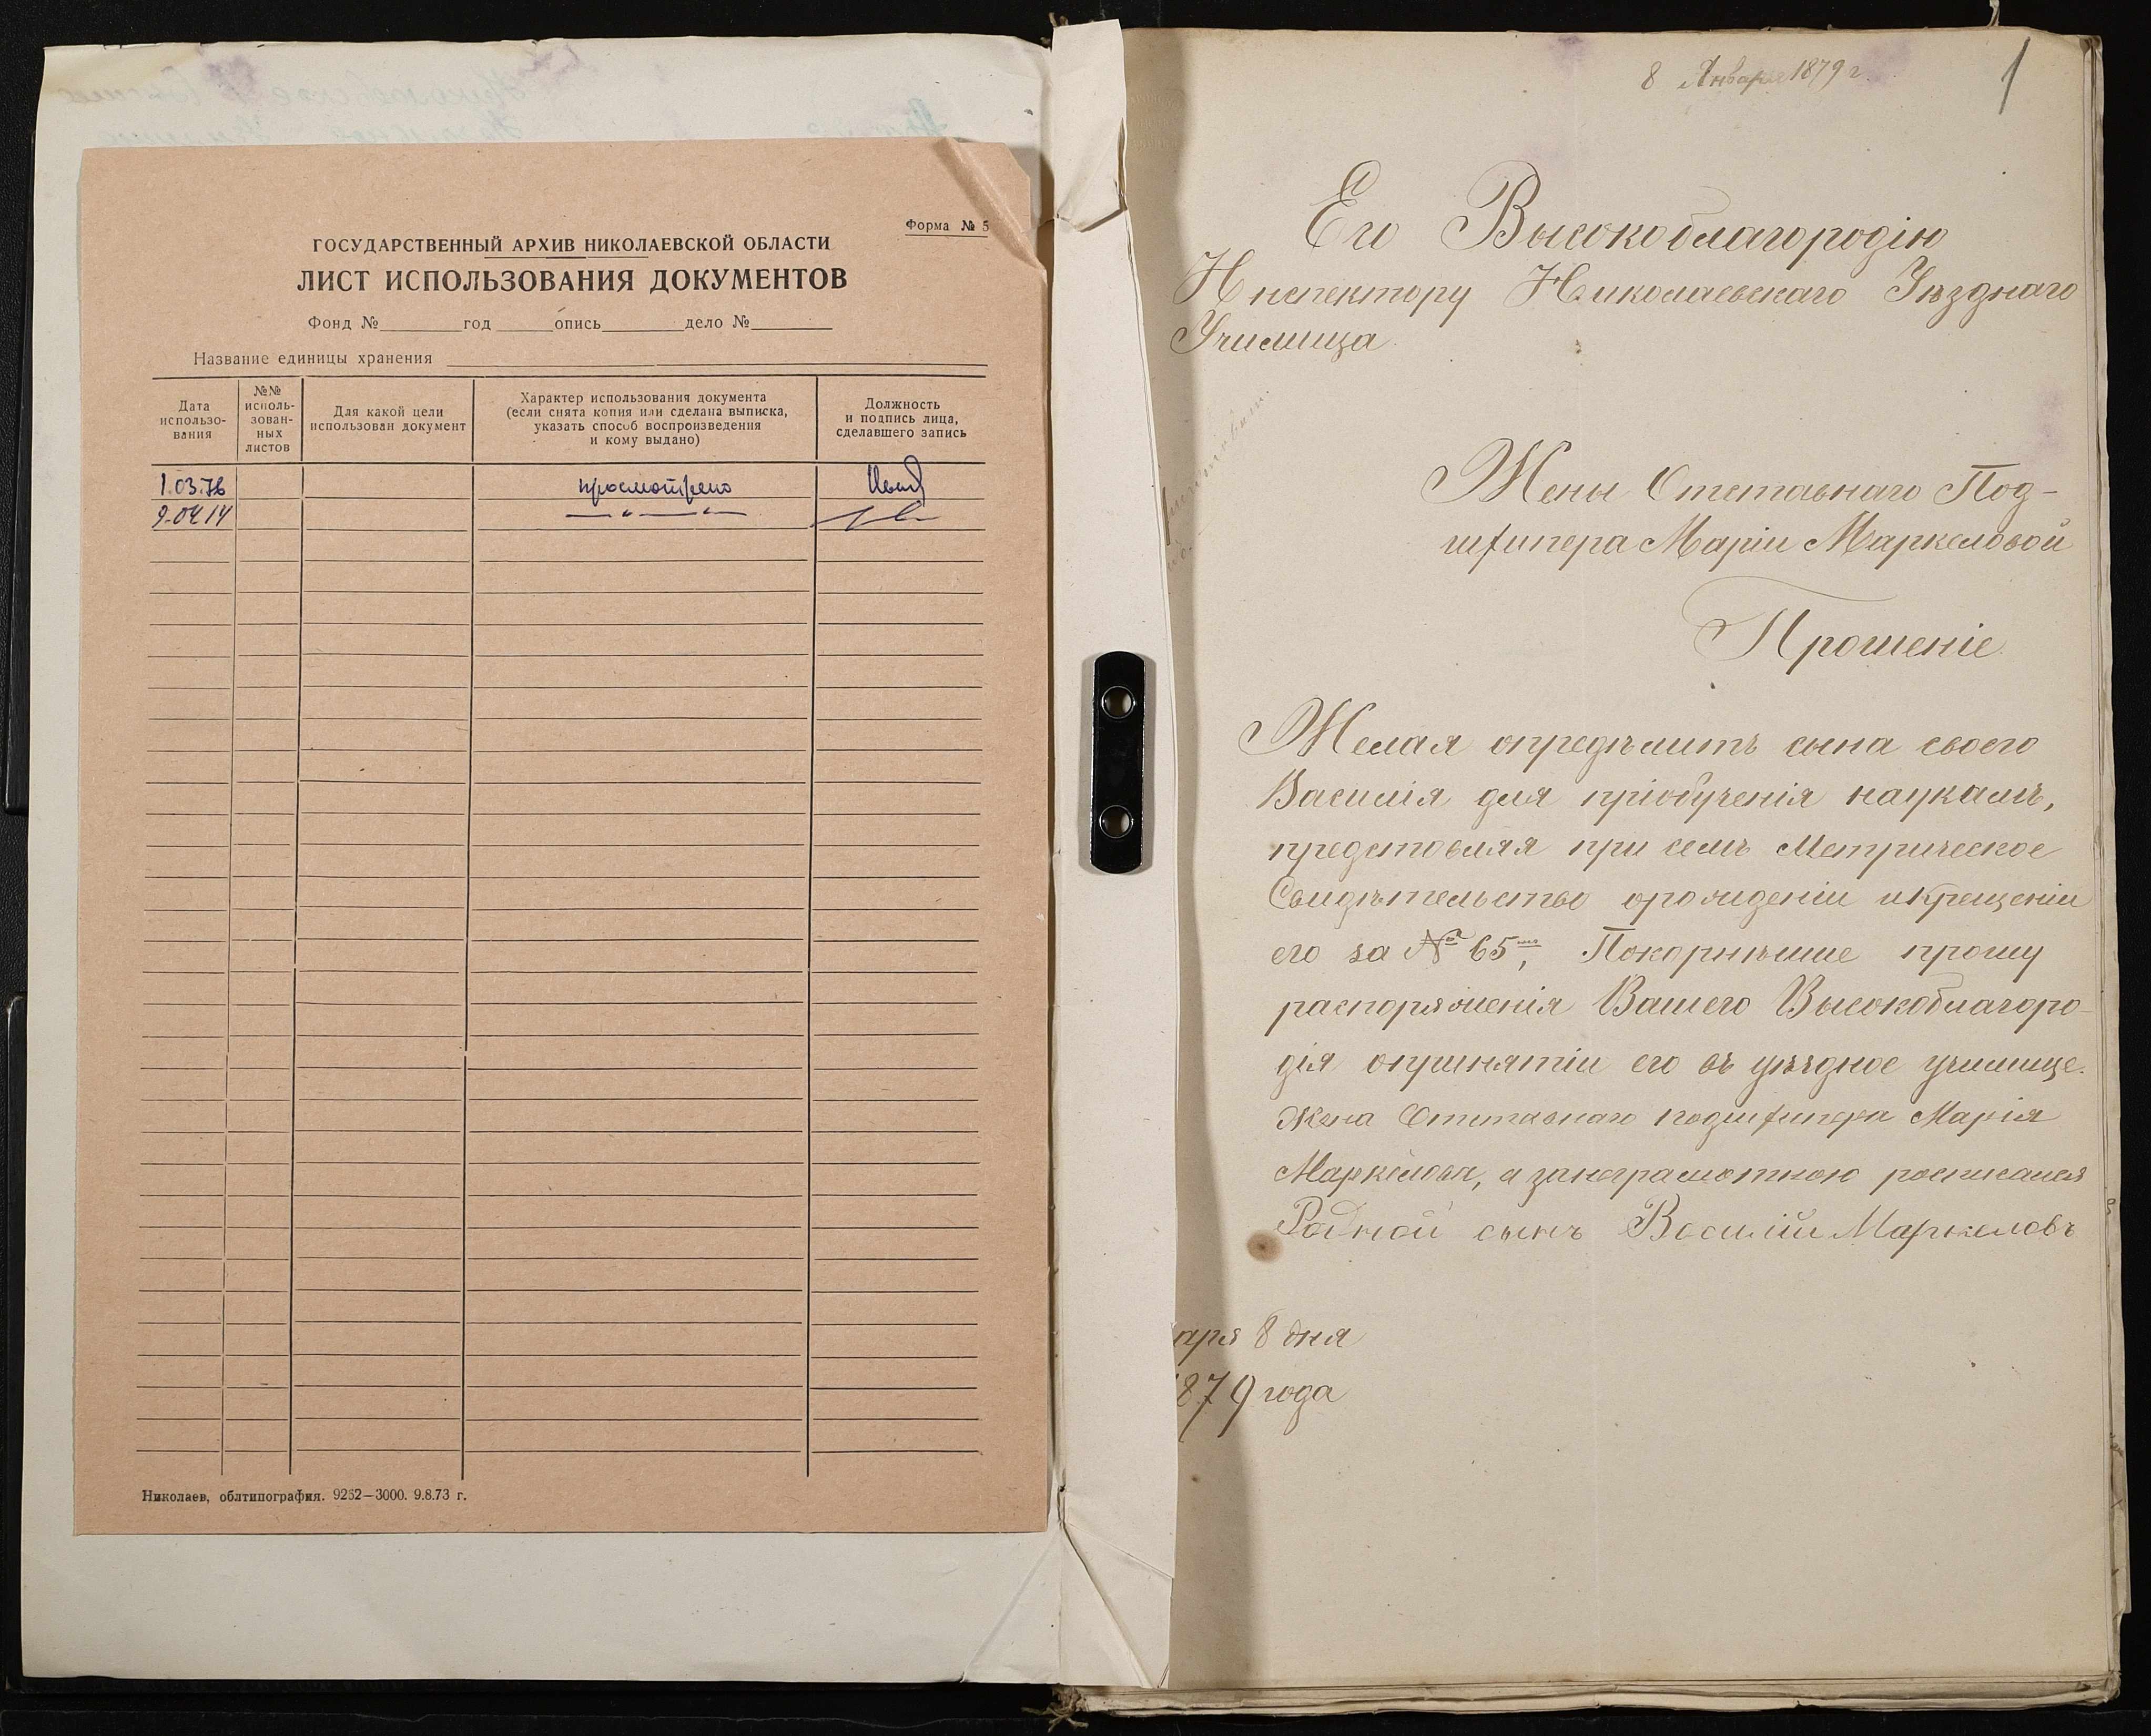 Форма № 5
ГОСУДАРСТВЕННЫЙ АРХИВ НИКОЛАЕВСКОЙ ОБЛАСТИ
ЛИСТ ИСПОЛЬЗОВАНИЯ ДОКУМЕНТОВ
Фонд № год опись дело №
Название единицы хранения
Дата использо-вания
№№ исполь-зован-ных листов
Для какой цели использован документ
Характер использования документа (если снята копия или сделана выписка, указать способ воспроизведения и кому выдано)
Должность и подпись лица, сделавшего запись
1.03.76 просмотрено
9.04 14 — „ — „ —
Николаев, облтипография. 9262—3000. 9.8.73 г.
8 Января 1879 г.
1
Его Высокоблагородію
Инспектору Николаевскаго Уѣзднаго
Училища
Жены Отставнаго Под-
шкипера Маріи Маркеловой
Прошеніе.
Желая опредѣлить сына своего
Василія для пріобученія наукамъ,
представляя при семъ Метрическое
Свидѣтельство орожденіи икрещеніи
его за № 65, Покорнѣйше прошу
распоряженія Вашего Высокоблагоро-
дія опринятіи его въ уѣздное училище.
Жена Отставнаго подшкипера Марія
Маркелова, а занеграмотною росписался
Родной сынъ Василій Маркеловъ
аря 8 дня
1879 года